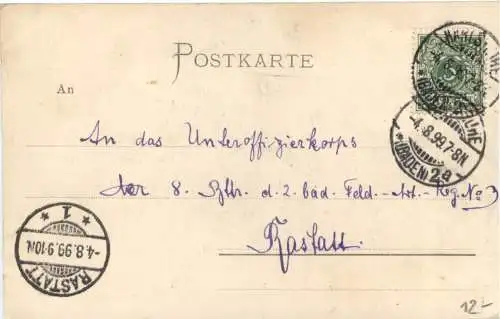 POSTKARTE
An
An das Unteroffizierkorps
der 8. Bttr. d. 2. bad. Feld-Art-Rg. No 3
Rastatt.
KARLSRUHE
-4.8.99.7-8N.
*(BADEN) 2a
* 1 *
-4.8.99.9-10N.
RASTATT
12.-